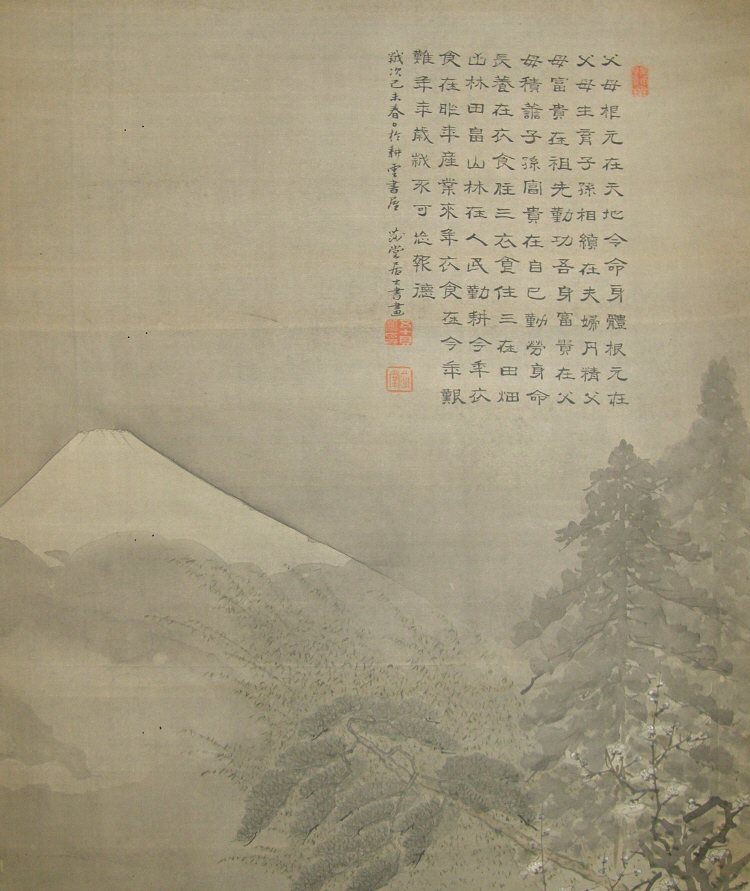 父母根元在天地令命身體根元在
父母生育子孫相續在夫婦丹精父
母富貴在祖先勤功吾身富貴在父
母積善子孫富貴在自己勤勞身命
長養在衣食住三衣食住三在田畑
山林田畠山林在人民勤耕今年衣
食在昨年産業來年衣食在今年艱
難年年歳歳不可忘報德
歳次己未春日於耕雲書屋 堂居士書畫